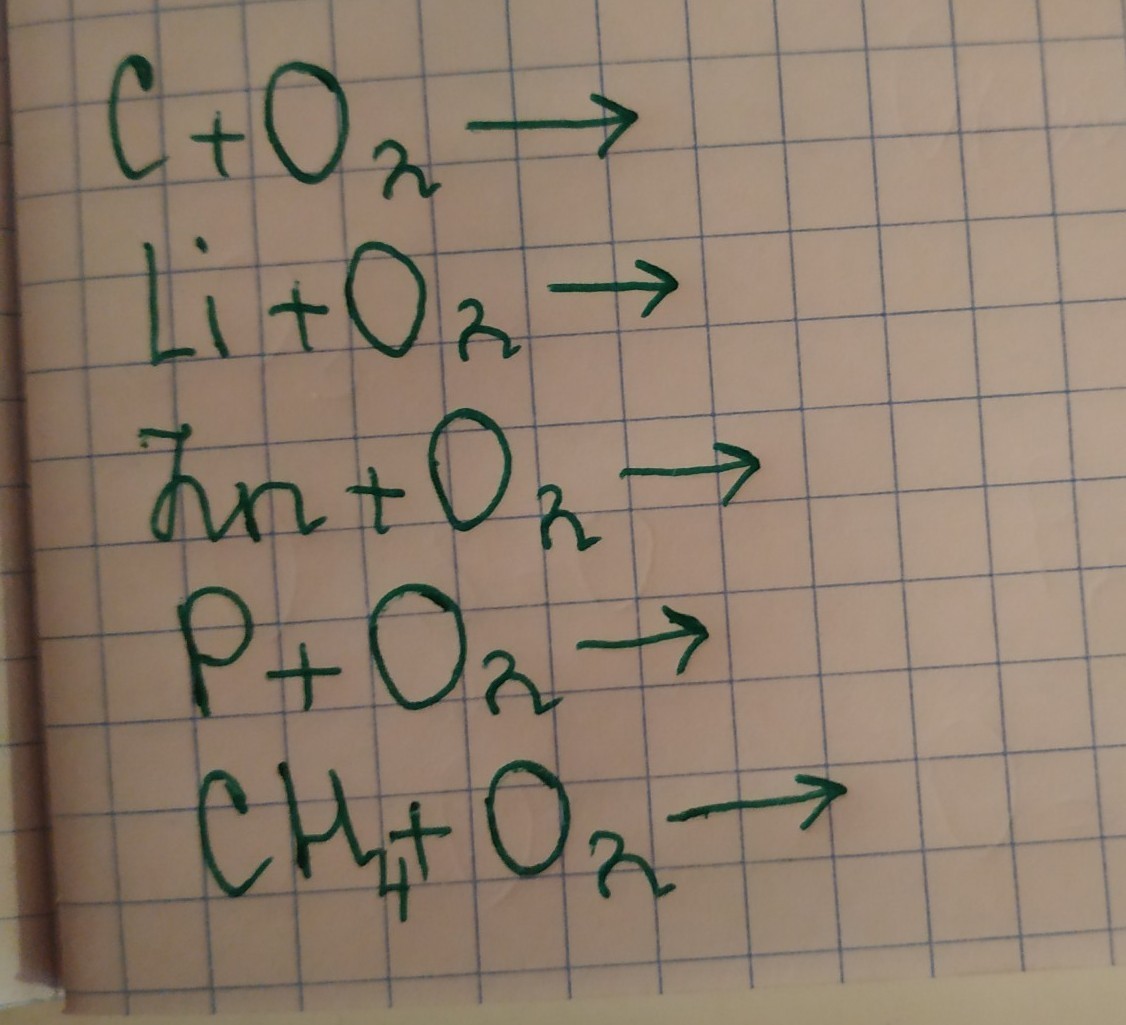 C + O₂ →
Li + O₂ →
Zn + O₂ →
P + O₂ →
CH₄ + O₂ →